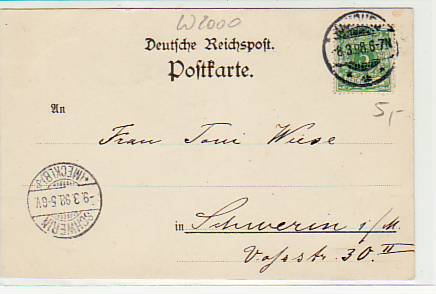 W2000
Deutsche Reichspost.
Postkarte.
8.3.98.6-7N
5
5,-
An
Frau Toni Wiese
SCHWERIN
(MECKLB)
9.3.98.5-6V
in Schwerin i/M.
Vossstr. 30 II